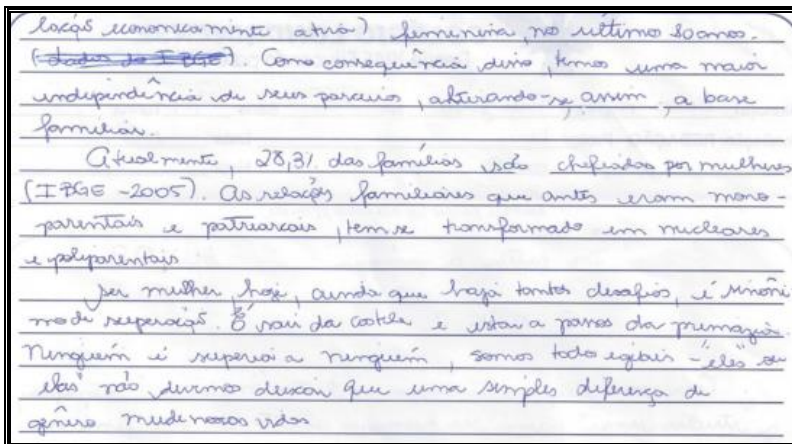 lação economicamente ativa) feminina, no último 50 anos.
(dados do IBGE). Como consequência disso, temos uma maior
independência de seus parceiros, alterando-se, assim, a base
familiar.
Atualmente, 28,3% das famílias são chefiadas por mulheres
(IBGE -2005). As relações familiares que antes eram mono-
parentais e patriarcais, tem se transformado em nucleares
e poliparentais
Ser mulher, hoje, ainda que haja tantos desafios, é sinôni
mo de superação. É sair da costela e estar a passos da primazia.
Ninguém é superior a ninguém, somos todos iguais - "eles" ou
elas" não devemos deixar que uma simples diferença de
gênero mude nossas vidas